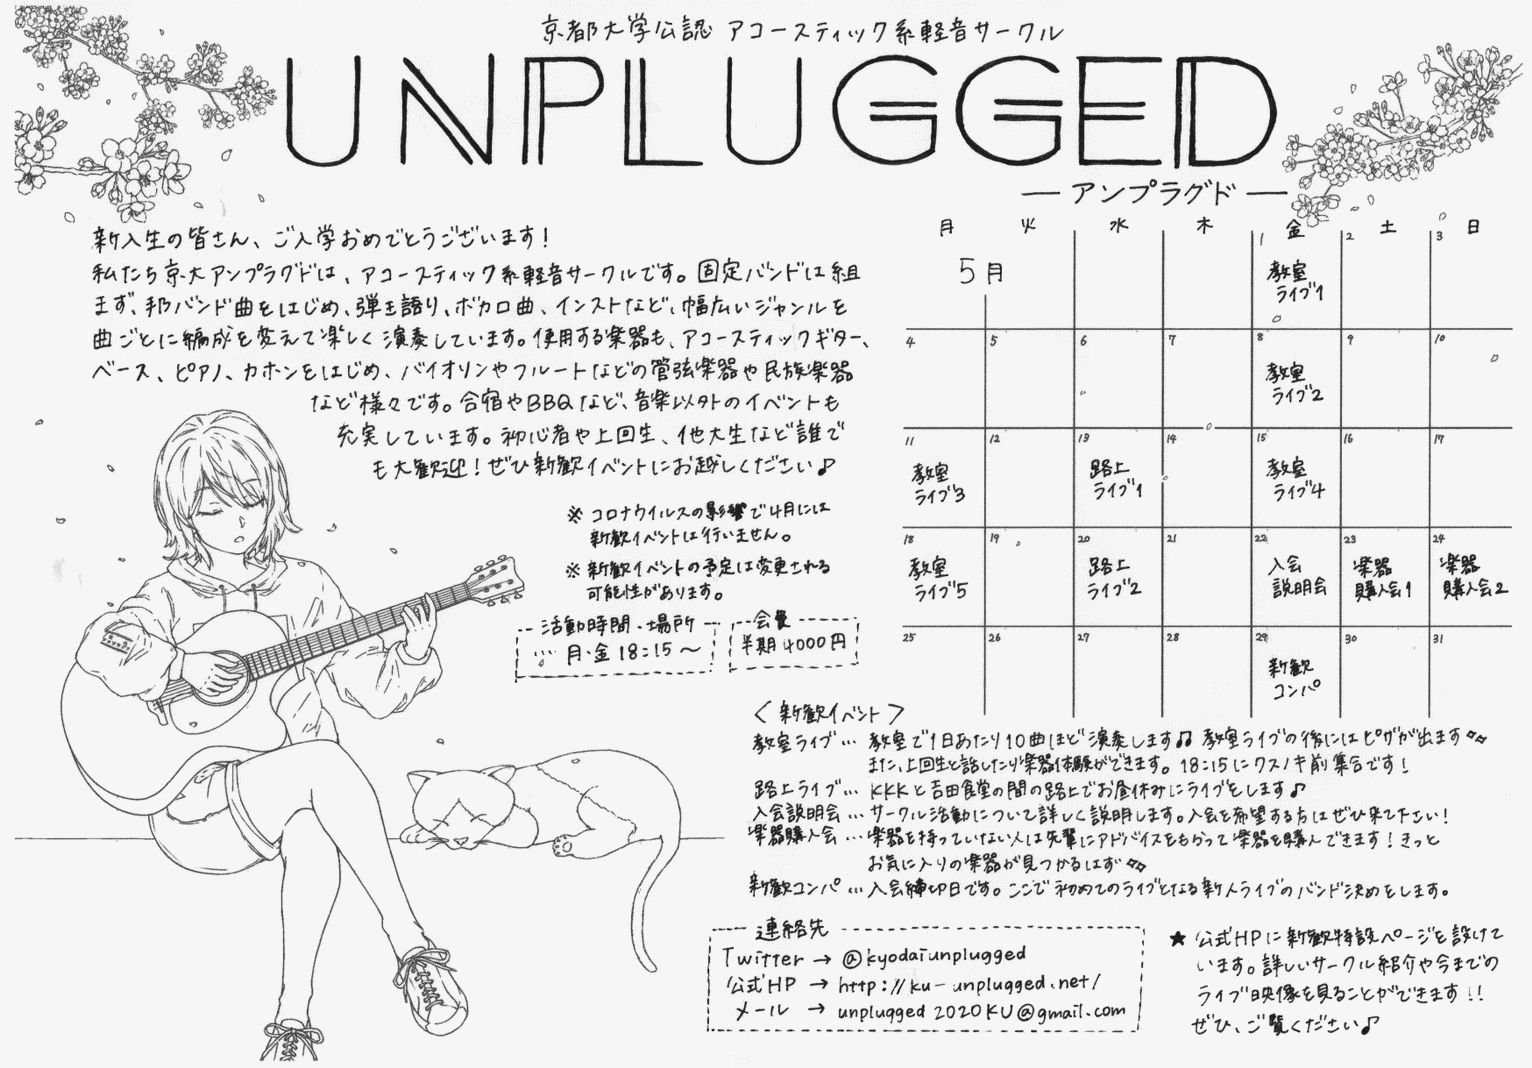 京都大学公認 アコースティック系軽音サークル
UNPLUGGED
― アンプラグド ―
新入生の皆さん、ご入学おめでとうございます!
私たち京大アンプラグドは、アコースティック系軽音サークルです。固定バンドは組
まず、邦バンド曲をはじめ、弾き語り、ボカロ曲、インストなど、幅広いジャンルを
曲ごとに編成を変えて楽しく演奏しています。使用する楽器も、アコースティックギター、
ベース、ピアノ、カホンをはじめ、バイオリンやフルートなどの管弦楽器や民族楽器
など様々です。合宿やBBQなど、音楽以外のイベントも
充実しています。初心者や上回生、他大生など誰で
も大歓迎!ぜひ新歓イベントにお越しください♪
※ コロナウイルスの影響で4月には
新歓イベントは行いません。
※ 新歓イベントの予定は変更される
可能性があります。
活動時間・場所
月・金 18:15〜
会費
半期4000円
月 火 水 木 金 土 日
5月
1 2 3
教室
ライブ1
4 5 6 7 8 9 10
教室
ライブ2
11 12 13 14 15 16 17
教室 路上 教室
ライブ3 ライブ1 ライブ4
18 19 20 21 22 23 24
教室 路上 入会 楽器 楽器
ライブ5 ライブ2 説明会 購入会1 購入会2
25 26 27 28 29 30 31
新歓
コンパ
〈新歓イベント〉
教室ライブ… 教室で1日あたり10曲ほど演奏します♫ 教室ライブの後にはピザが出ます
また、上回生と話したり楽器体験ができます。18:15にクスノキ前集合です!
路上ライブ… KKKと吉田食堂の間の路上でお昼休みにライブをします♪
入会説明会… サークル活動について詳しく説明します。入会を希望する方はぜひ来て下さい!
楽器購入会… 楽器を持っていない人は先輩にアドバイスをもらって楽器を購入できます!きっと
お気に入りの楽器が見つかるはず
新歓コンパ… 入会締切日です。ここで初めてのライブとなる新人ライブのバンド決めをします。
連絡先
Twitter → @kyodaiunplugged
公式HP → http://ku-unplugged.net/
メール → unplugged2020KU@gmail.com
★ 公式HPに新歓特設ページを設けて
います。詳しいサークル紹介や今までの
ライブ映像を見ることができます!!
ぜひ、ご覧ください♪